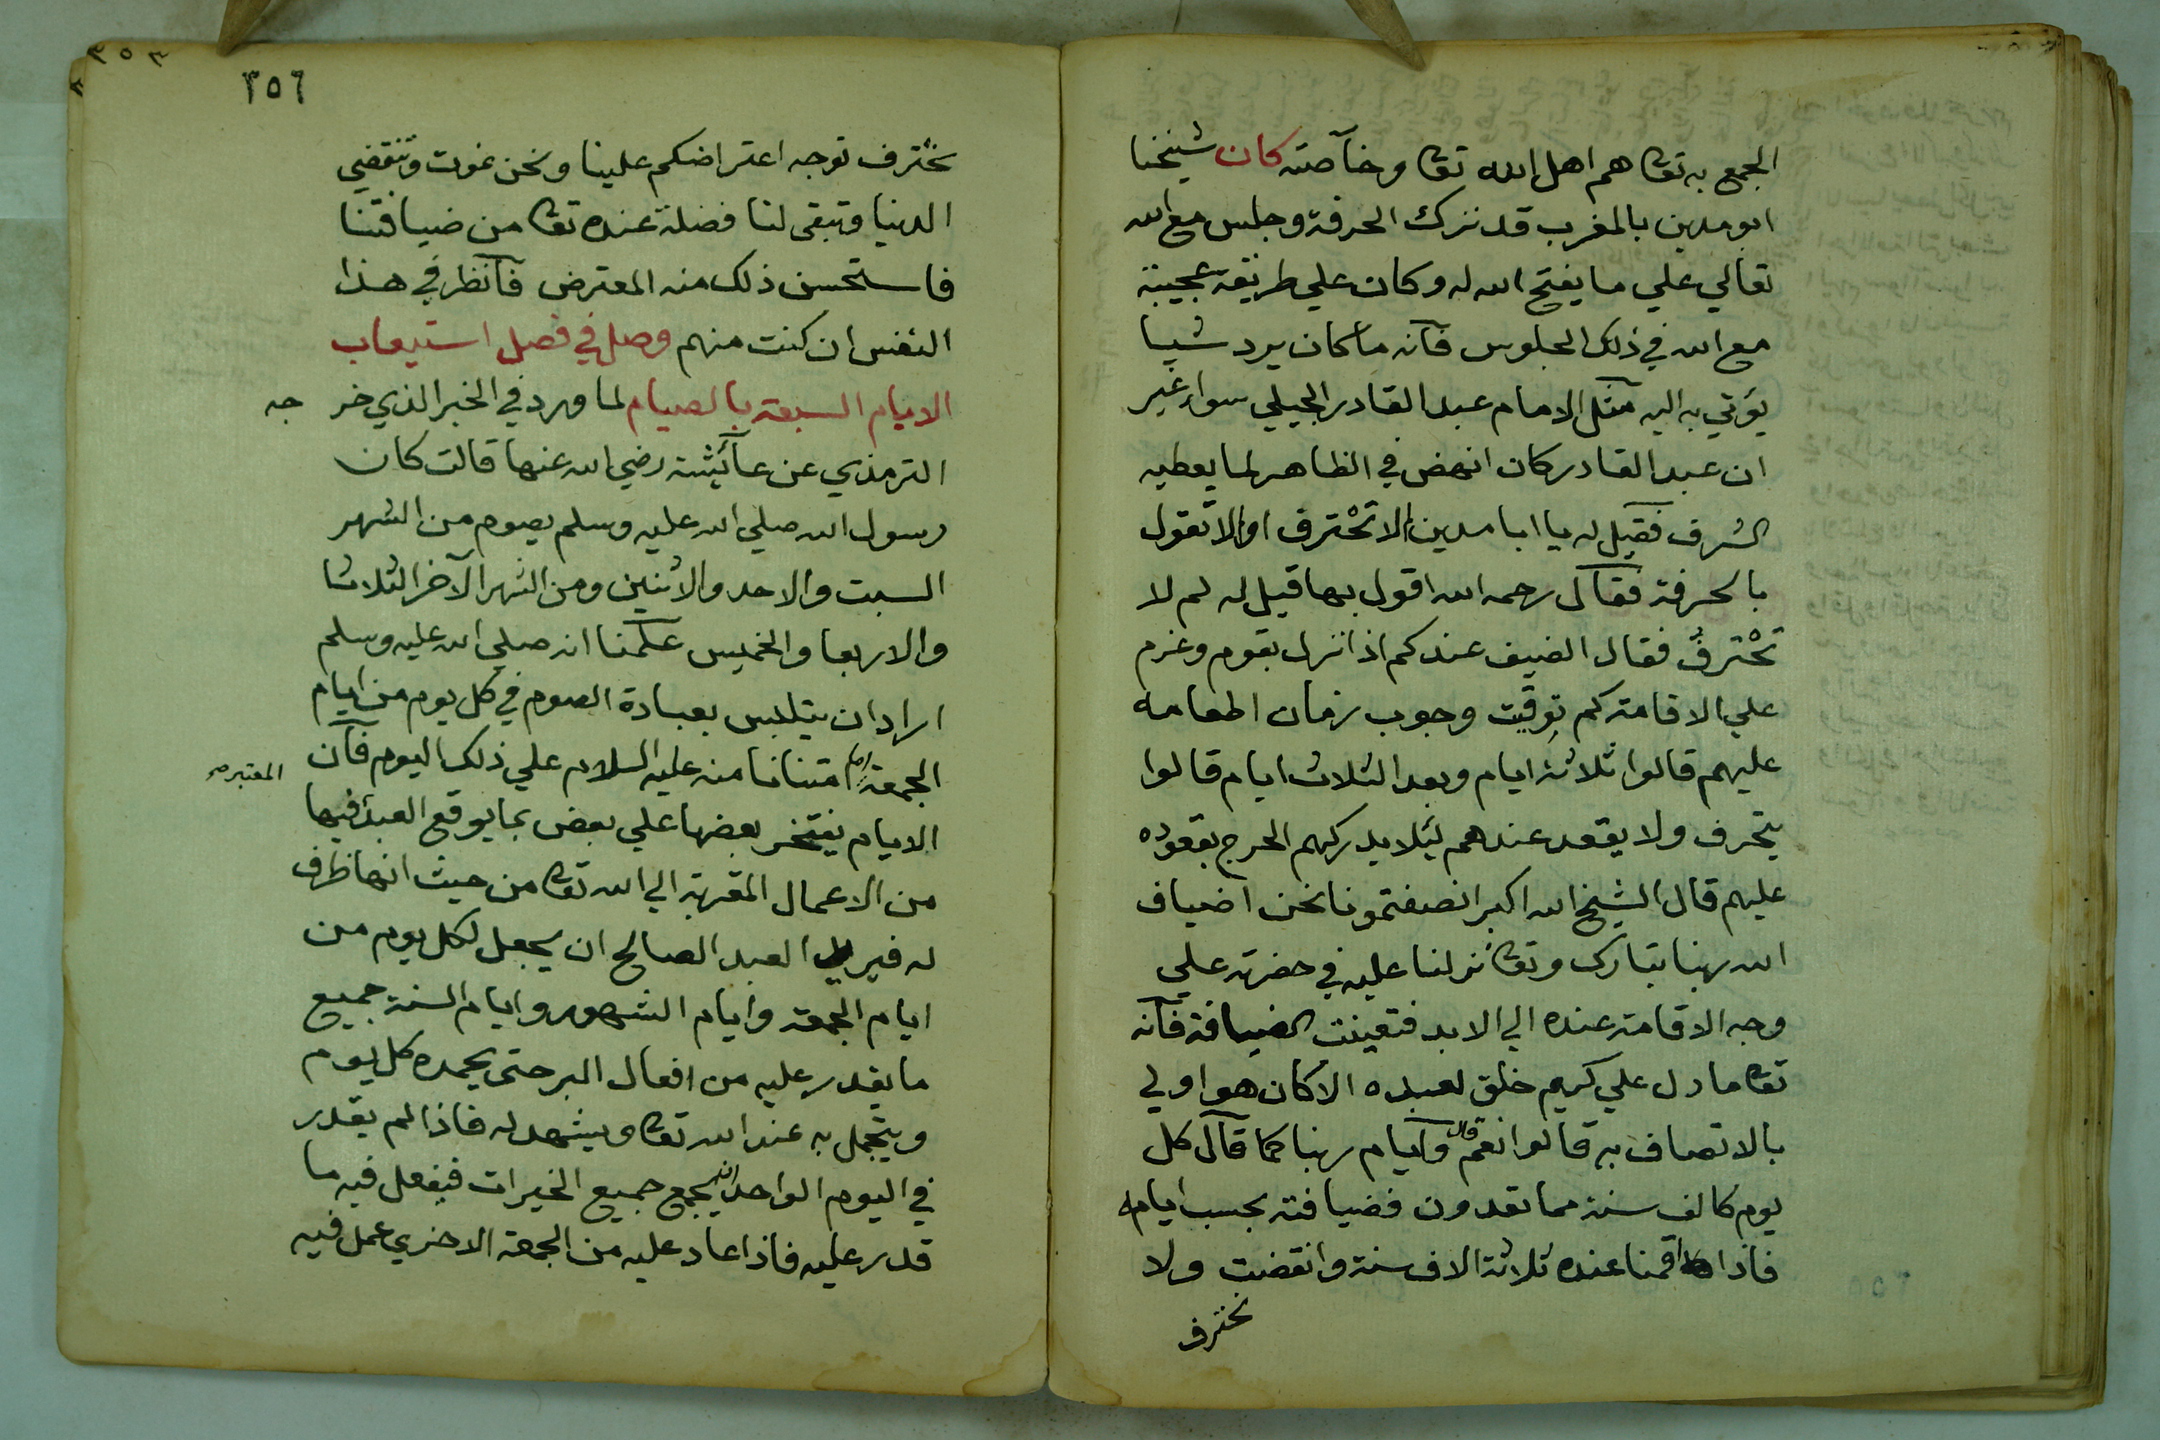 الجمع به تعا هم اهل الله تعا وخآصته كان شيخنا
ابو مدين بالمغرب قد ترك الحرفة وجلس مع الله
تعالي علي ما يفتح الله له وكان علي طريقة عجيبة
مع الله في ذلك الجلوس فآنه ما كان يرد شيا
يؤتي به اليه مثل الامام عبد القادر الجيلي سواء غير
ان عبد القادر كان انهض في الظاهر لما يعطيه
الشرف فقيل له يا ابا مدين الا تحْترف او الا تقول
بالحرفة فقال رحمه الله اقول بها قيل له لم لا
تحْترفُ فقال الضيف عندكم اذا نزل بقوم وعزم
علي الاقامة كم توقيت وجوب زمان اطعامه
عليهم قالوا ثلاثة ايام وبعد الثلاث ايام قالوا
يتحرف ولا يقعد عندهم ليلا يدركهم الحرج بقعوده
عليهم قال الشيخ الله اكبر انصفتمونا نحن اضياف
الله ربنا تبارك وتعا نزلنا عليه في حضرته علي
وجه الاقامة عنده الي الابد فتعينت الضيافة فآنه
تعا ما دل علي كريم خلق لعبده الا كان هو اولي
بالاتصاف به قالوا نعم قال وآيام ربنا كما قال كل
يوم كالف سنة مما تعدون فضيافته بحسب ايامه
فاذا اقمنا عنده ثلاثة الاف سنة وانقضت ولا
نحترف
٣٥٣
٣٥٦
نحترف توجه اعتراضكم علينا ونحن نموت وتنقضي
الدنيا وتبقى لنا فضلة عنده تعا من ضيافتنا
فاستحسن ذلك منه المعترض فآنظر في هذا
النفس ان كنت منهم وصل في فصل استيعاب
الايام السبعة بالصيام لما ورد في الخبر الذي خر جه
الترمذي عن عآئشة رضي الله عنها قالت كان
رسول الله صلي الله عليه وسلم يصوم من الشهر
السبت والاحد والاثنين ومن الشهر الآخر الثلاثا
والاربعا والخميس علمنا انه صلي الله عليه وسلم
اراد ان يتلبس بعبادة الصوم في كل يوم من ايام
الجمعة اما امتنانا منه عليه السلام علي ذلك اليوم فآن
المعتبره
الايام يفتخر بعضها علي بعض بما يوقع العبد فيها
من الاعمال المقربة الي الله تعا من حيث انها ظرف
له فيريد العبد الصالح ان يجعل لكل يوم من
ايام الجمعة وايام الشهور وايام السنة جميع
ما يقدر عليه من افعال البر حتى يحمده كل يوم
ويتجمل به عند الله تعا ويشهد له فاذا لم يقدر
في اليوم الواحد ان يجمع جميع الخيرات فيفعل فيه ما
قدر عليه فاذا عاد عليه من الجمعة الاخري عمل فيه